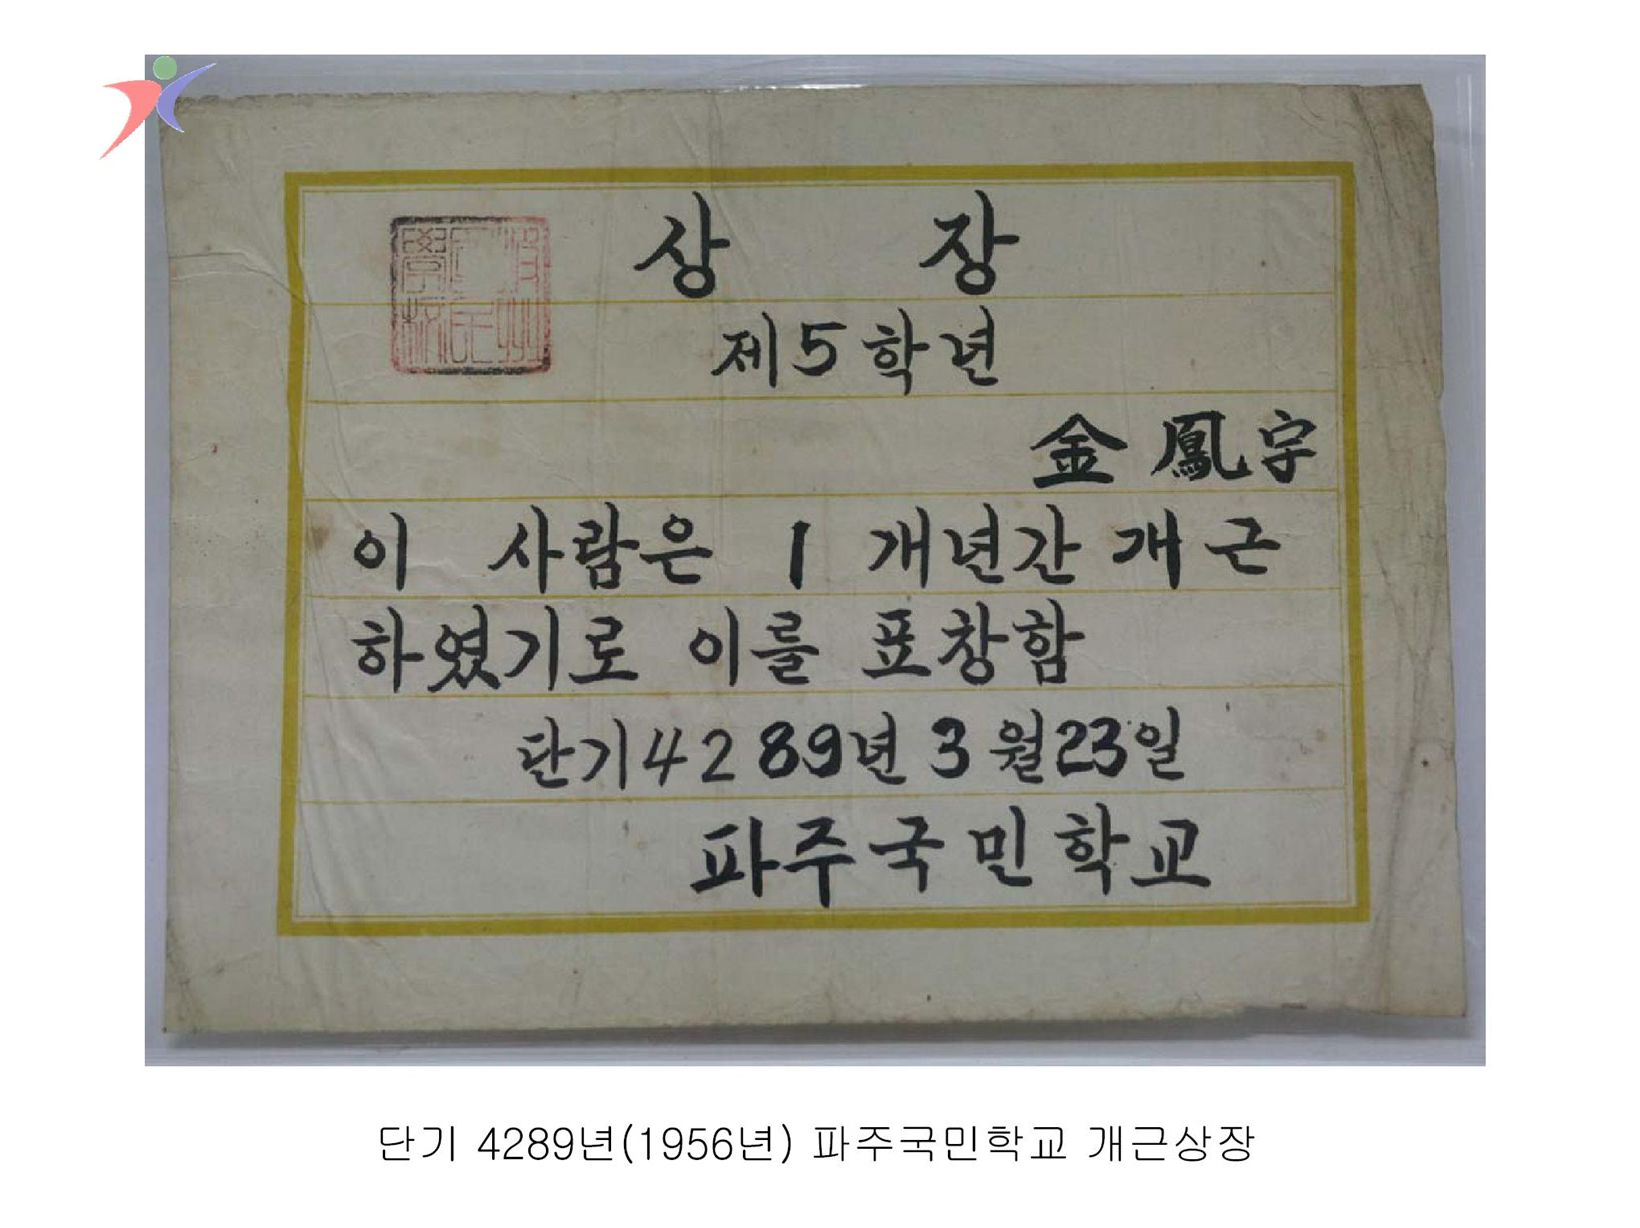 상 장
제5학년
金鳳宇
이 사람은 1 개년간 개근
하였기로 이를 표창함
단기4289년 3월23일
파주국민학교
단기 4289년(1956년) 파주국민학교 개근상장